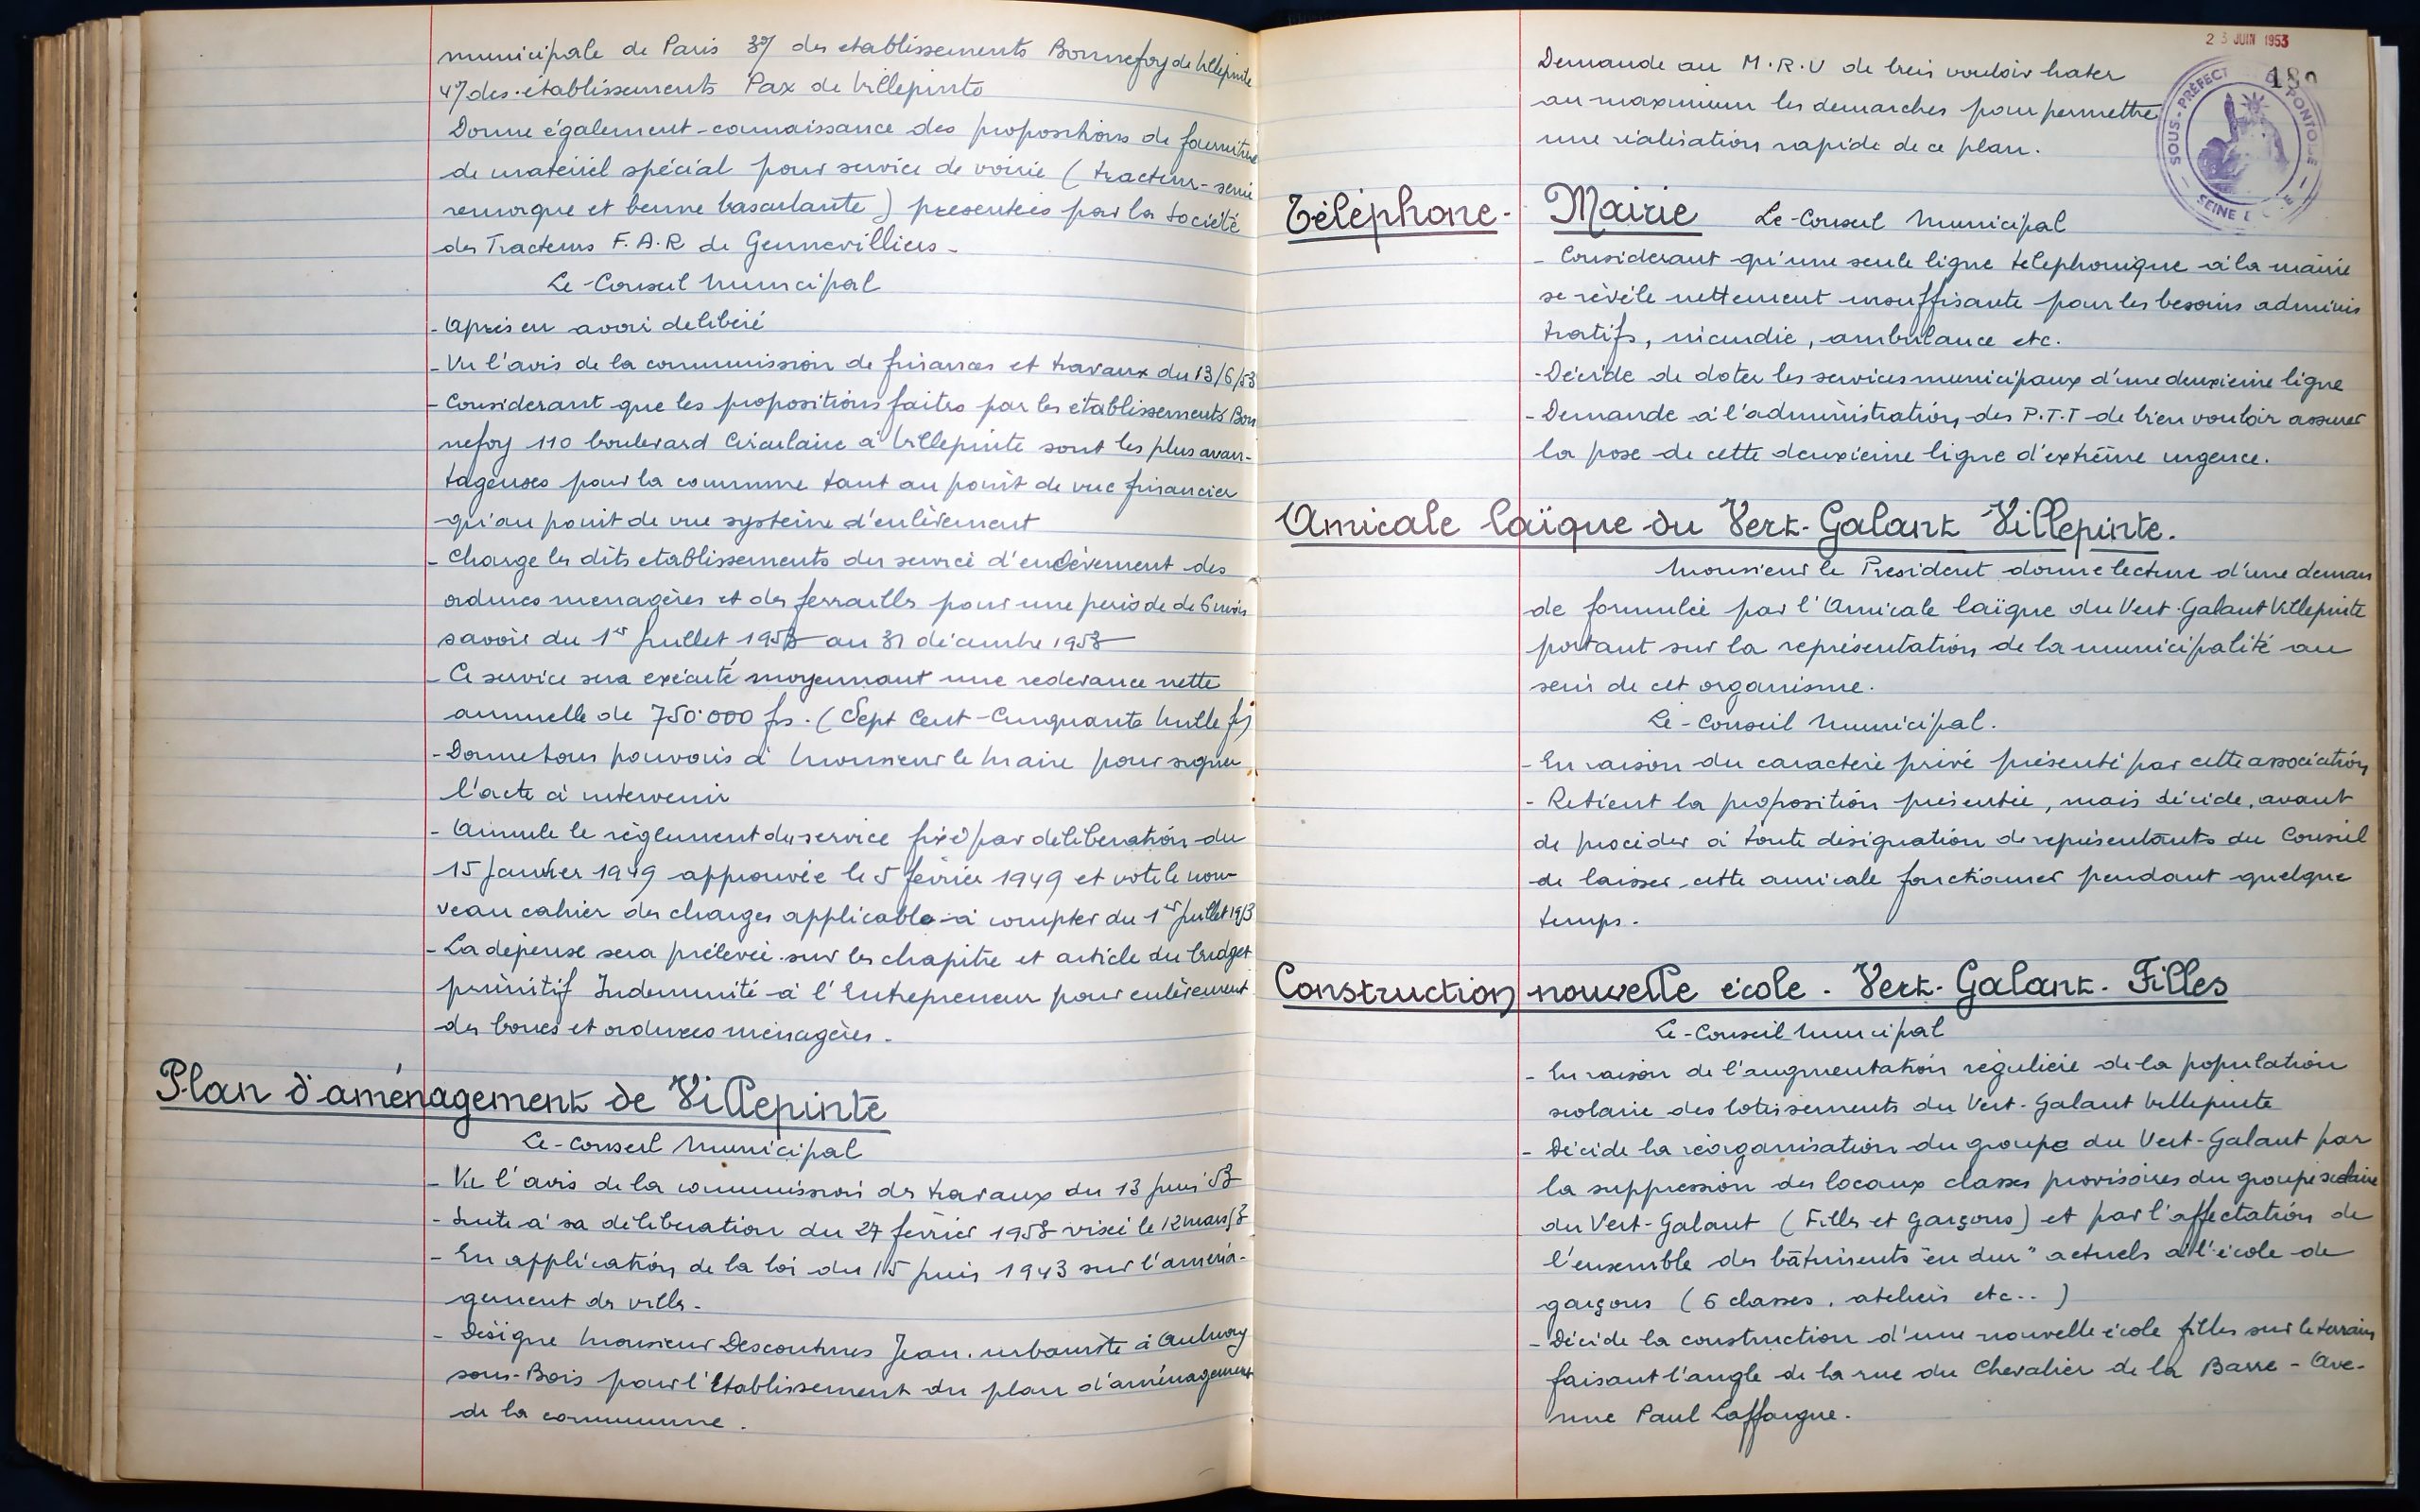 municipale de Paris 3°/ des etablissements Bonnefoy de Villepinte
4°/ des établissements Pax de Villepinte
Donne également connaissance des propositions de fourniture
de matériel spécial pour service de voirie (tracteur-semi
remorque et benne basculante) presentées par la Société
des Tracteurs F.A.R de Gennevilliers -
Le Conseil Municipal
- Après en avoir delibéré
- Vu l'avis de la commission de finances et travaux du 13/6/53
- Considerant que les propositions faites par les établissements Bon
nefoy 110 boulevard Circulaire à Villepinte sont les plus avan-
tageuses pour la commune tant au point de vue financier
qu'au point de vue système d'enlèvement
- Charge les dits etablissements du service d'enlèvement des
ordures menagères et des ferrailles pour une periode de 6 mois
savoir du 1er Juillet 1953 au 31 décembre 1953
- Ce service sera exécuté moyennant une redevance nette
annuelle de 750.000 frs. (Sept Cent-Cinquante Mille frs)
- Donne tous pouvoirs à Monsieur le Maire pour signer
l'acte à intervenir
- Annule le règlement du service fixé par deliberation du
15 Janvier 1949 approuvée le 5 février 1949 et vote le nou-
veau cahier des charges applicable à compter du 1er Juillet 1953
- La dépense sera prélevée sur les chapitre et article du budget
primitif Indemnité à l'Entrepreneur pour enlèvement
des boues et ordures ménagères.
Plan d'aménagement de Villepinte
Le Conseil Municipal
- Vu l'avis de la commission des travaux du 13 Juin 53
- Suite à sa déliberation du 27 février 1953 visée le 12 mars 53
- En application de la loi du 15 juin 1943 sur l'aména-
gement des villes.
- Désigne Monsieur Descoutures Jean. urbaniste à Aulnay
sous-Bois pour l'établissement du plan d'aménagement
de la commune.
23 JUIN 1953
SOUS-PRÉFECT PONTOISE
SEINE
Demande au M.R.U de bien vouloir hater
au maximum les demarches pour permettre
une réalisation rapide de ce plan.
Téléphone - Mairie Le Conseil Municipal
- Considerant qu'une seule ligne telephonique à la mairie
se révèle nettement insuffisante pour les besoins adminis
tratifs, incendie, ambulance etc.
- Décide de doter les services municipaux d'une deuxieme ligne
- Demande à l'administration des P.T.T de bien vouloir assurer
la pose de cette deuxieme ligne d'extrême urgence.
Amicale laïque du Vert-Galant Villepinte.
Monsieur le President donne lecture d'une deman
de formulée par l'Amicale laïque du Vert-Galant Villepinte
portant sur la représentation de la municipalité au
sein de cet organisme.
Le Conseil Municipal.
- En raison du caractère privé présenté par cette association
- Retient la proposition présentée, mais décide, avant
de procéder à toute désignation de représentants du Conseil
de laisser cette amicale fonctionner pendant quelque
temps.
Construction nouvelle école - Vert-Galant - Filles
Le Conseil Municipal
- En raison de l'augmentation régulière de la population
scolaire des lotissements du Vert-Galant Villepinte
- Décide la réorganisation du groupe du Vert-Galant par
la suppression des locaux classes provisoires du groupe scolaire
du Vert-Galant (Filles et Garçons) et par l'affectation de
l'ensemble des bâtiments "en dur" actuels à l'école de
garçons (6 classes, ateliers etc..)
- Décide la construction d'une nouvelle école filles sur le terrain
faisant l'angle de la rue du Chevalier de la Barre - Ave-
nue Paul Laffargue.